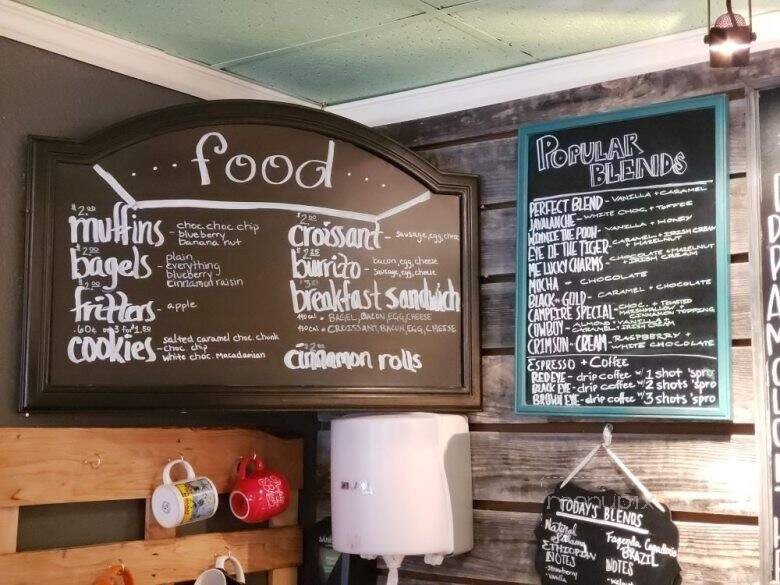 ....food....
$2.00
muffins - choc.choc.chip
blueberry
banana nut
$2.00
bagels - plain
everything
blueberry
cinnamon raisin
$2.00
fritters - apple
.60¢ or 3 for $1.50
cookies salted caramel choc chunk
choc chip
white choc. macadamian
$2.00
croissant - sausage, egg, cheese
burrito - bacon, egg, cheese
sausage, egg, cheese
breakfast sandwich
- BAGEL, BACON, EGG, CHEESE
- CROISSANT, BACON, EGG, CHEESE
cinnamon rolls
POPULAR
BLENDS
PERFECT BLEND - VANILLA + CARAMEL
JAVALANCHE - WHITE CHOC. + TOFFEE
WINNIE THE POOH - VANILLA + HONEY
EYE OF THE TIGER - CARAMEL + IRISH CREAM + HAZELNUT
ME LUCKY CHARMS - CHOCOLATE + HAZELNUT + IRISH CREAM
MOCHA - CHOCOLATE
BLACK + GOLD - CARAMEL + CHOCOLATE
CAMPFIRE SPECIAL - CHOC. + TOASTED MARSHMALLOW + CINNAMON TOPPING
COWBOY - ALMOND + VANILLA + CARAMEL + IRISH CREAM
CRIMSON + CREAM - RASPBERRY + WHITE CHOCOLATE
ESPRESSO + COFFEE
RED EYE - drip coffee w/ 1 shot 'spro
BLACK EYE - drip coffee w/ 2 shots 'spro
BROWN EYE - drip coffee w/ 3 shots 'spro
menupix
TODAY'S BLENDS
Natural
ETHIOPIAN
NOTES
- strawberry
- vanilla
Fazenda
BRAZIL
NOTES